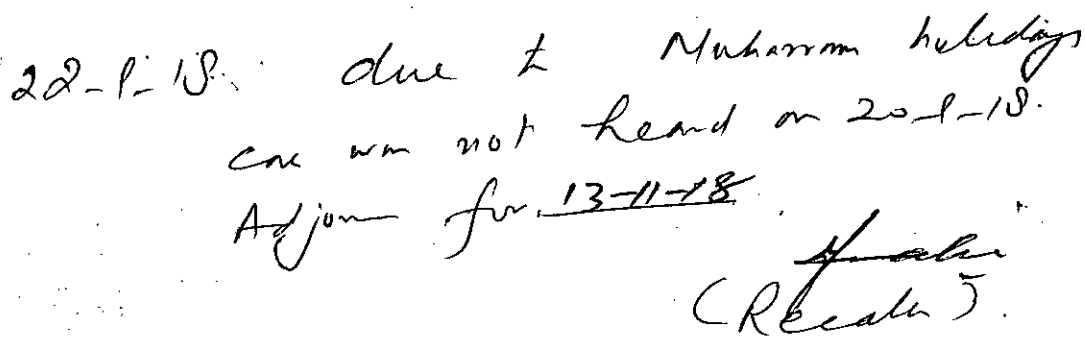 22-9-18. due to Muharram holidays
case was not heard on 20-9-18.
Adjourn for 13-11-18
(Reader).